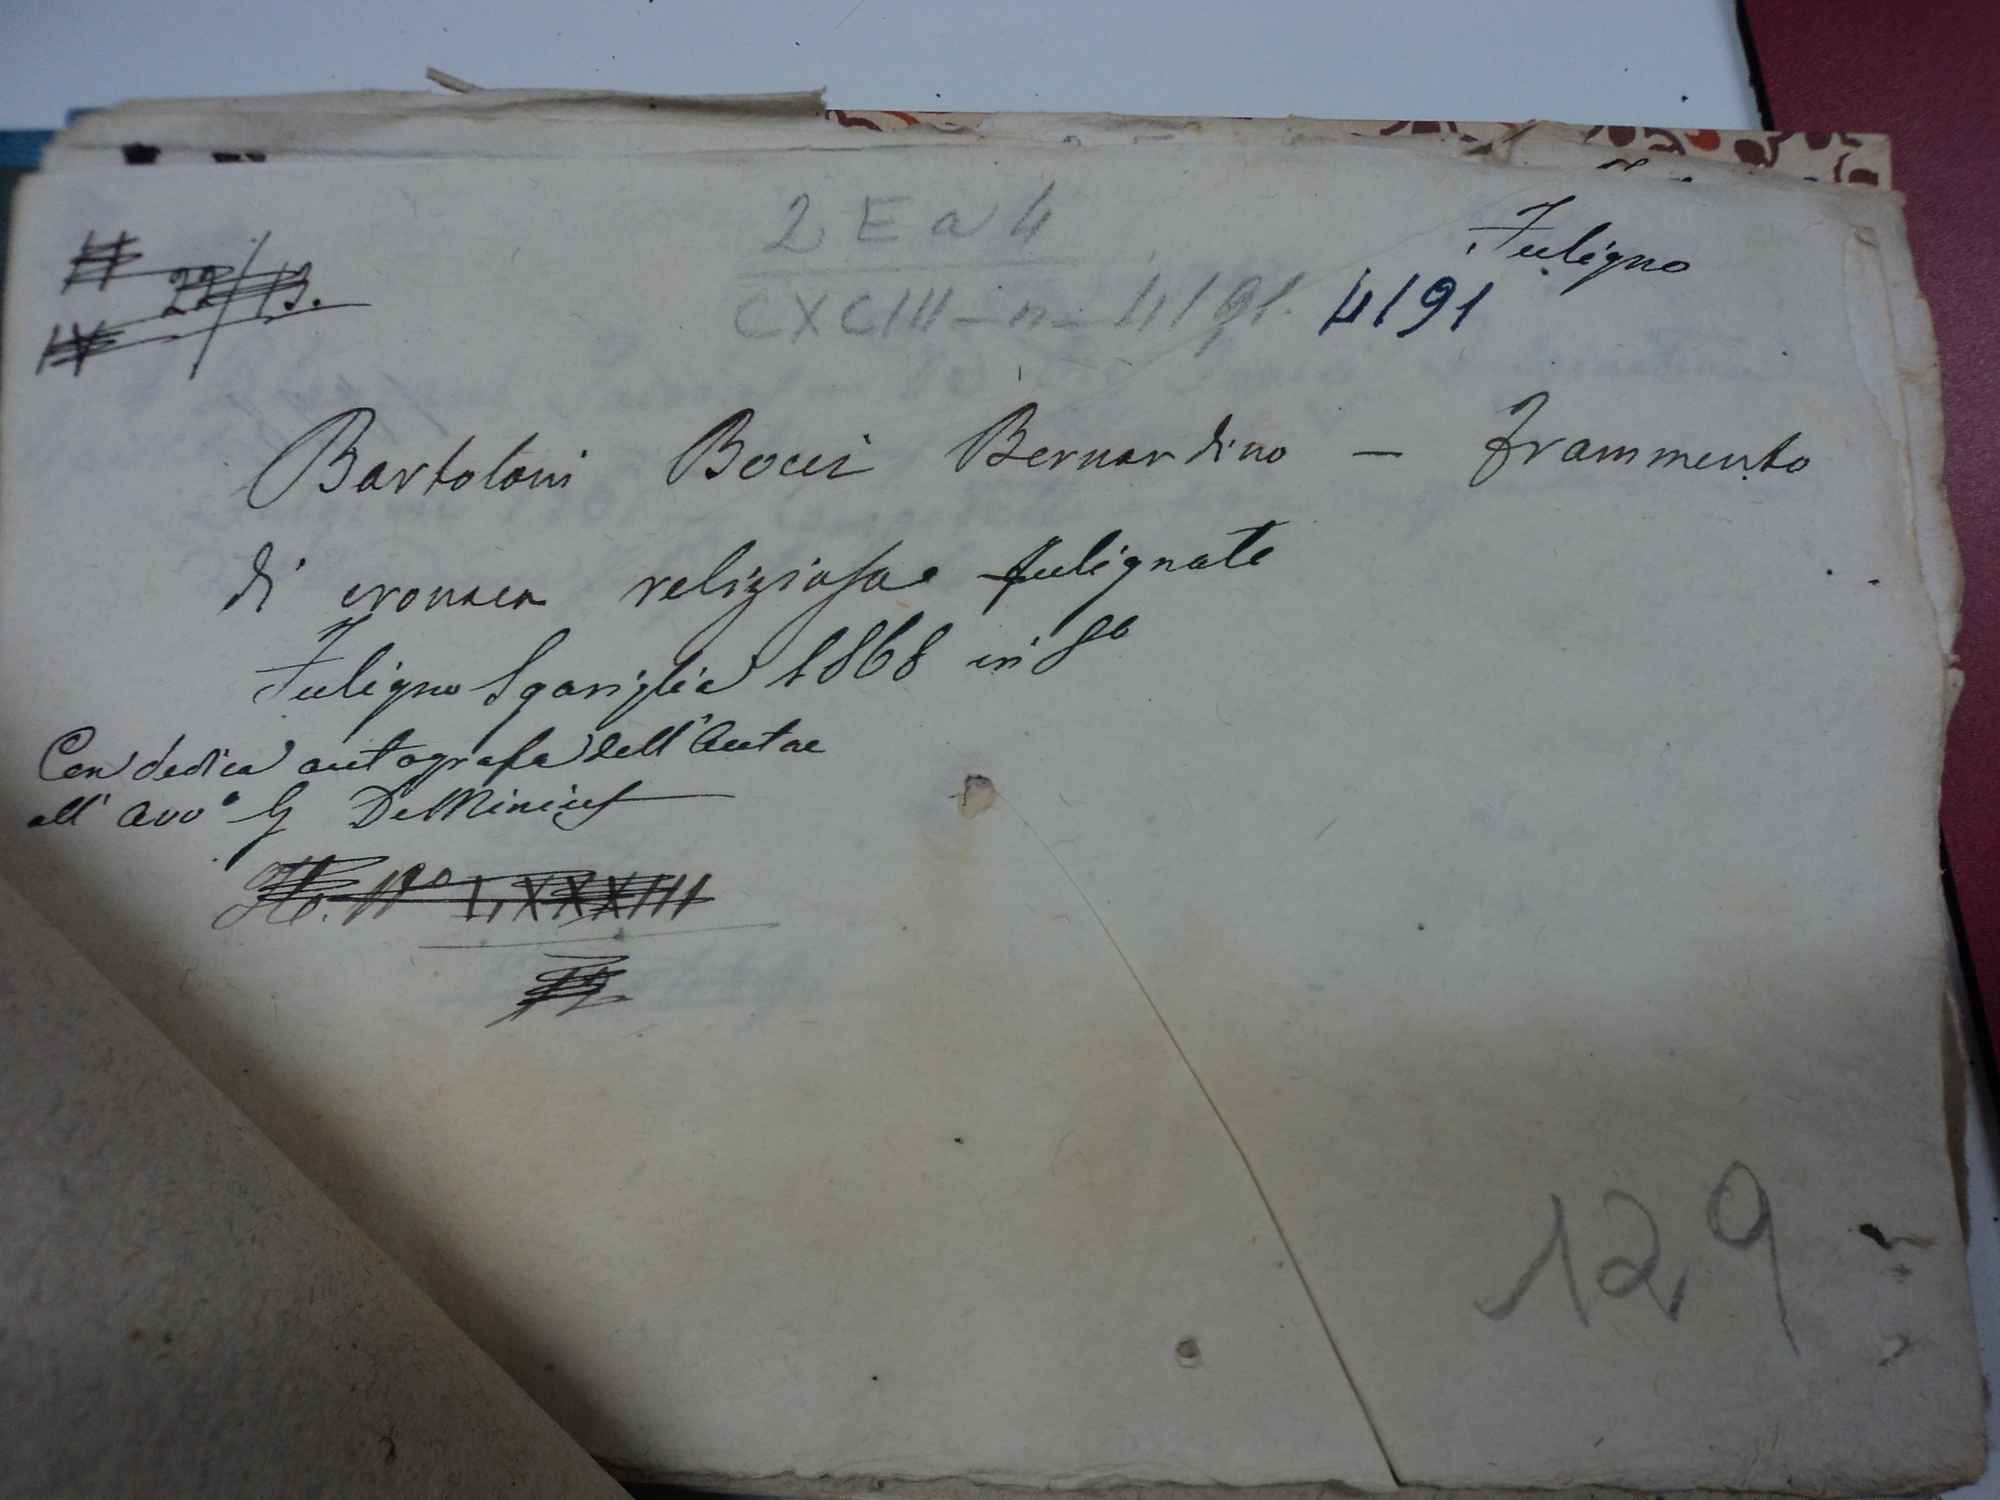 2 E a 4
Fuligno
22/13.
CXCIII - n - 4/91. 4/91
IV
Bartoloni Bocci Bernardino - Frammento
di cronaca religiosa fulignate
Fuligno Sgariglia 1868 in 8o
Con dedica autografa dell'Autore
all' Avvo G De Minicis
No LXXXIII
129